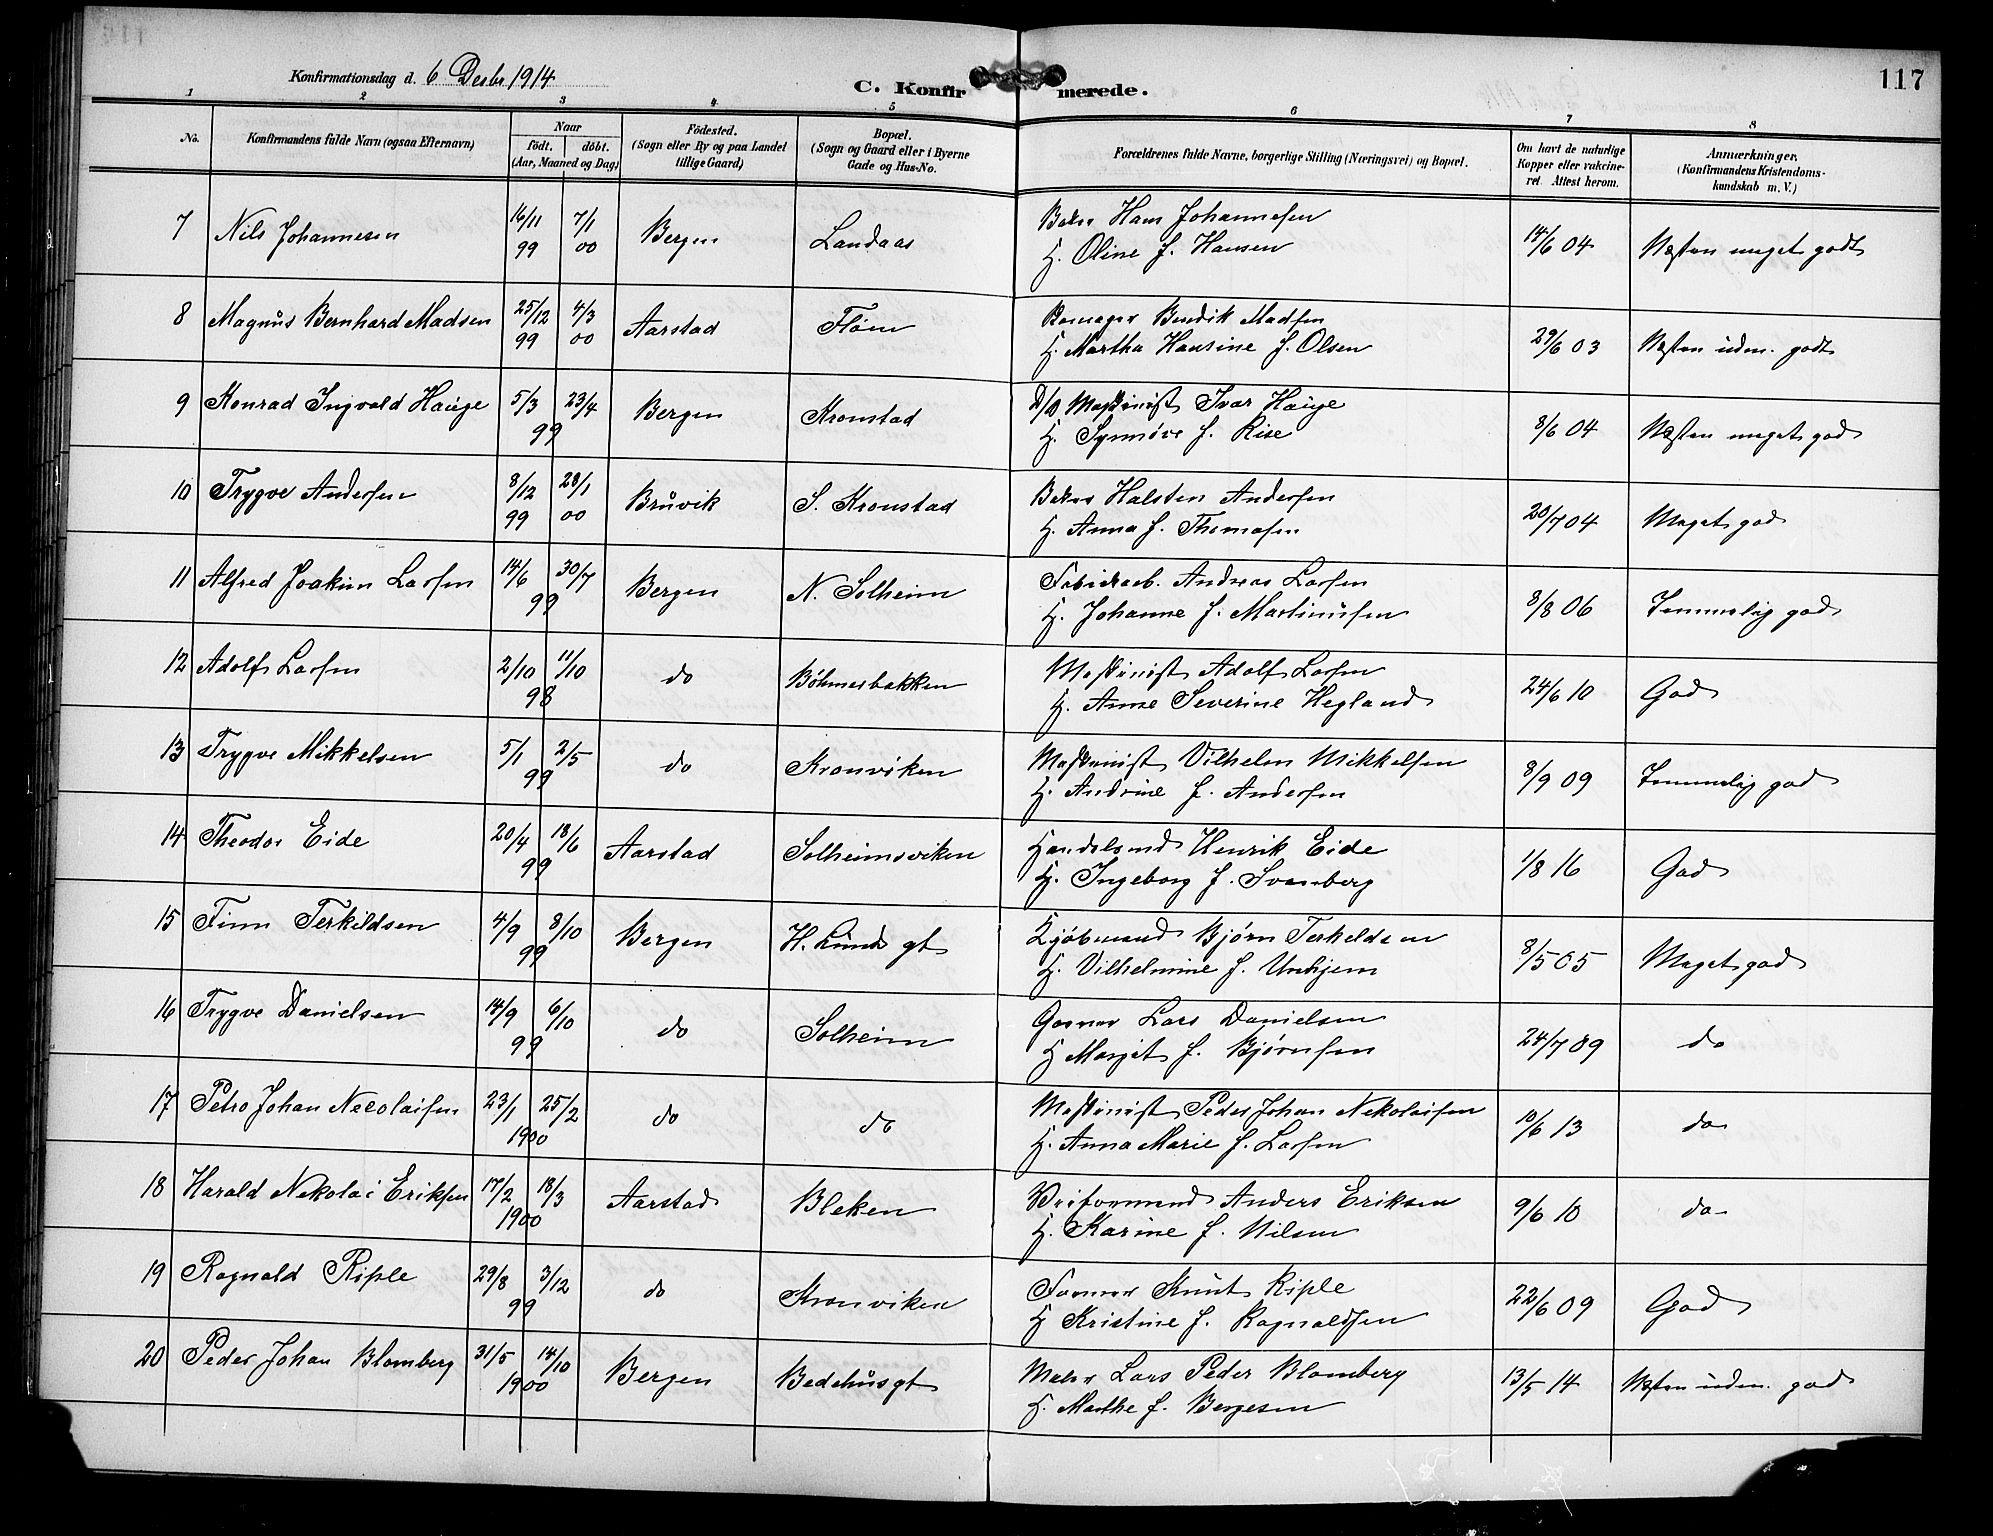 117
Konfirmationsdag d. 6 Desbr 1914
C. Konfirmerede.
1 2 3 4 5 6 7 8
No. Konfirmandens fulde Navn (ogsaa Efternavn) Naar født. døbt. (Aar, Maaned og Dag) Födested. (Sogn eller By og paa Landet tillige Gaard) Bopæl. (Sogn og Gaard eller i Byerne Gade og Hus-No. Forældrenes fulde Navne, borgerlige Stilling (Næringsvei) og Bopæl. Om havt de naturlige Kopper eller vakcineret. Attest herom. Anmærkninger. (Konfirmandens Kristendomskundskab m. V.)
7 Nils Johannesen 16/11 99 7/1 00 Bergen Landaas Baker Hans Johannesen
H. Oline f. Hansen 14/6 04 Næsten meget godt
8 Magnus Bernhard Madsen 25/12 99 4/3 00 Aarstad Fløen Bendik Madsen
H. Martha Hansine f. Olsen 29/6 03 Næsten udm. godt
9 Konrad Ingvald Hauge 5/3 23/4 99 Bergen Kronstad D/S Maskinist Ivar Hauge
H. Synnøve f. Rise 8/6 04 Næsten meget god
10 Trygve Andersen 8/12 99 28/1 00 Bruvik S. Kronstad Baker Halsten Andersen
H. Anna f. Thomasen 20/7 04 Meget god
11 Alfred Joakim Larsen 14/6 30/7 99 Bergen N. Solheim Fabrikarb. Andreas Larsen
H. Johanne f. Martinusen 8/8 06 Temmelig god
12 Adolf Larsen 2/10 11/10 98 do Böhmerbakken Maskinist Adolf Larsen
H. Anne Severine Hegland 24/6 10 God
13 Trygve Mikkelsen 5/1 2/5 99 do Kronviken Maskinist Vilhelm Mikkelsen
H. Andrine f. Andersen 8/9 09 Temmelig god
14 Theodor Eide 20/4 18/6 99 Aarstad Solheimsviken Handelsmd Henrik Eide
H. Ingeborg f. Svanberg 1/8 16 God
15 Finn Terkildsen 4/9 8/10 99 Bergen H. Lunds gt Kjøbmand Bjørn Terkeldsen
H. Vilhelmine f. Unhjem 8/5 05 Meget god
16 Trygve Danielsen 14/9 6/10 99 do Solheim Garver Lars Danielsen
H Marjit f. Bjørnsen 24/7 09 do
17 Petro Johan Necolaisen 23/1 25/2 1900 do do Maskinist Peder Johan Nekolaisen
H. Anna Marie f. Larsen 10/6 13 do
18 Harald Nekolai Eriksen 17/2 18/3 1900 Aarstad Bleken Anders Eriksen
H. Karine f. Nilsen 9/6 10 do
19 Ragnald Riple 29/8 3/12 99 do Kronviken Former Knut Riple
H Kristine f. Ragnaldsen 22/6 09 God
20 Peder Johan Blomberg 31/5 14/10 1900 Bergen Bedehusgt Maler Lars Peder Blomberg
H. Marthe f. Bergesen 13/5 14 Næsten udm. god